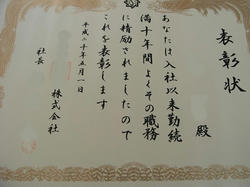 表彰状
殿
あなたは入社以来勤続
満十年間よくその職務
に精励されましたので
これを表彰します
平成二十年五月一日
株式会社
社長